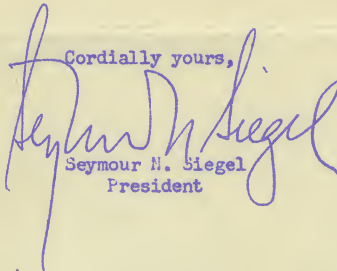 Cordially yours,
Seymour N. Siegel
Seymour N. Siegel
President